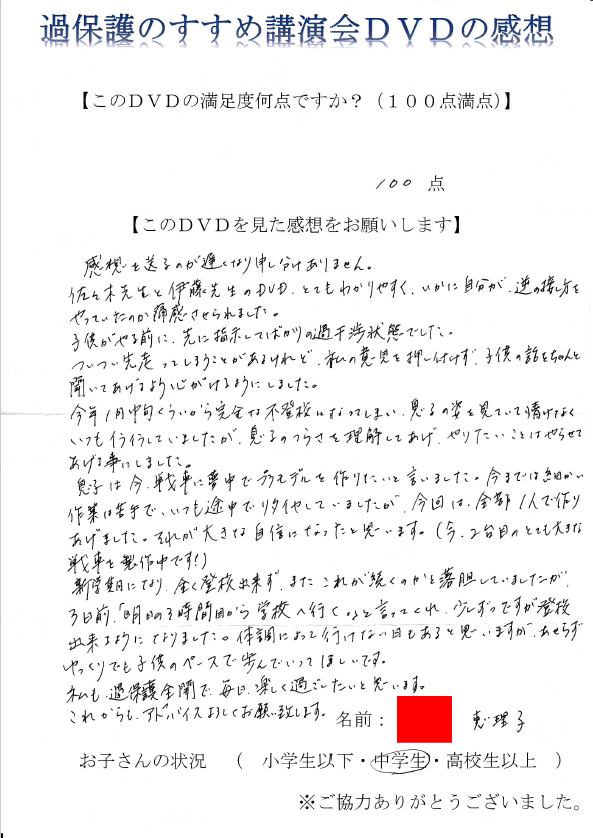 過保護のすすめ講演会DVDの感想
【このDVDの満足度何点ですか?(100点満点)】
100 点
【このDVDを見た感想をお願いします】
感想を送るのが遅くなり申し分けありません。
佐々木先生と伊藤先生のDVD、とてもわかりやすく、いかに自分が、逆の接し方を
やっていたのか痛感させられました。
子供がやる前に、先に指示してばかりの過干渉状態でした。
ついつい先走ってしまうことがあるけれど、私の意見を押し付けず、子供の話をちゃんと
聞いてあげるよう心がけるようにしました。
今年1月中旬くらいから完全な不登校になってしまい、息子の姿を見ていて情けなく
いつもイライラしていましたが、息子のつらさを理解してあげ、やりたいことはやらせて
あげる事にしました。
息子は今、戦車に夢中でプラモデルを作りたいと言いました。今までは細かい
作業は苦手で、いつも途中でリタイヤしていましたが、今回は、全部1人で作り
あげました。それが大きな自信になったと思います。(今、2台目のとても大きな
戦車を製作中です!)
新学期になり、全く登校出来ず、またこれが続くのかと落胆していましたが、
3日前、「明日の3時間目から学校へ行く。」と言ってくれ、少しずつですが登校
出来るようになりました。体調によって行けない日もあると思いますが、あせらず
ゆっくりでも子供のペースで歩んでいってほしいです。
私も、過保護全開で、毎日、楽しく過ごしたいと思います。
これからも、アドバイスよろしくお願い致します。
名前: 恵理子
お子さんの状況 ( 小学生以下・中学生・高校生以上 )
※ご協力ありがとうございました。